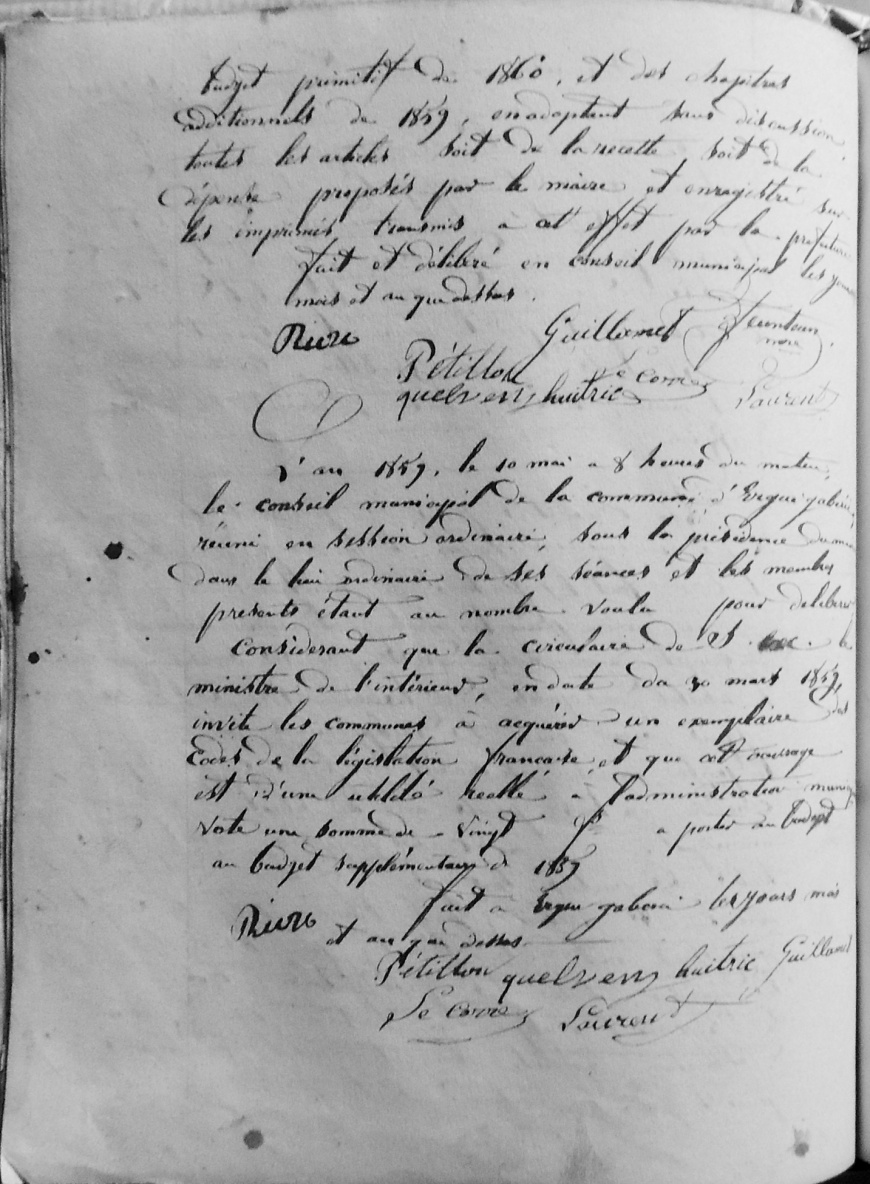 budget primitif de 1860, et des chapitres
additionnels de 1859, en adoptent sans discussion
toutes les articles soit de la recette soit de la
dépense proposés par le maire et enregistré sur
les imprimés transmis a cet effet par la préfecture
fait et délibéré en conseil municipal les jour
mois et an que dessus.
Riou Guillamet
Pétillon Le Corre
quelven huitric Laurent
L'an 1859, le 10 mai a 8 heures du matin,
le conseil municipal de la commune d'Ergué gabéric,
réuni en session ordinaire, sous la présidence du maire
dans le lieu ordinaire de ses séances et les membres
presents étant au nombre voulu pour deliberer
Considerant que la circulaire de S. Exc. le
ministre de l'intérieur, en date du 30 mars 1859,
invite les communes à acquérir un exemplaire des
Codes de la législation francaise, et que cet ouvrage
est d'une utilité reelle à l'administration municip
Vote une somme de vingt fr a porter au budget
au budget supplémentaire de 1859
fait a Ergué gaberic les jours mois
et an que dessus
Riou
Pétillon quelven huitric Guillamet
Le Corre Laurent